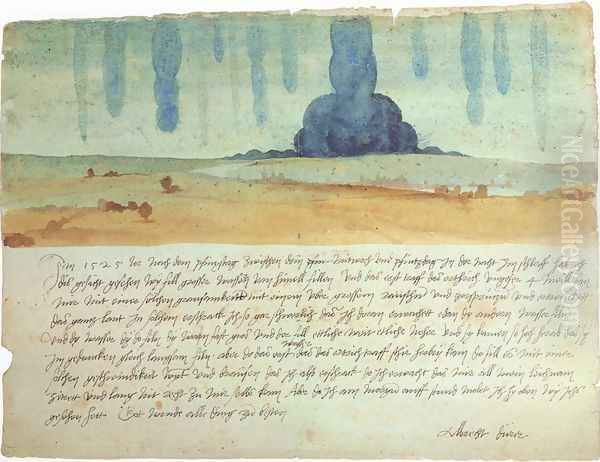 Im 1525 Jor nach dem pfinxstag zwischen dem Mitwoch und pfintzdag in der nacht im schlaff hab ich
dis gesicht gesehen wy fill grosser wassern vom himell fillen Und das erst traff das erthrich ungefer 4 meill fan
mir mit einer solchen grausamkeitt mit einem uber grossem raüschn und zersprützn und ertrenckett
das gantz lant In solchem erschrack ich so gar schwerlich das ich doran erwachett e dan dy andern wasser filn
Und dy wasser dy do filn dy warn fast gros und der fill ettliche weit ettliche neher und sy kamen so hoch herab das sy
im gedancken gleich langsam filn aber do das erst wasser das das ertrich traff schir herbey kam do fill es mit einer
solchen geschwindikeit wynt und braüsen das ich also erschrack do ich erwacht das mir all mein leichnam
zitrett und lang nit recht zu mir selbs kam Aber do ich am morgn auff stund molet ich hy oben wy ichs
gesehen hett Got wende alle ding zu besten
Albrecht dürer
NiceArtGallery.com